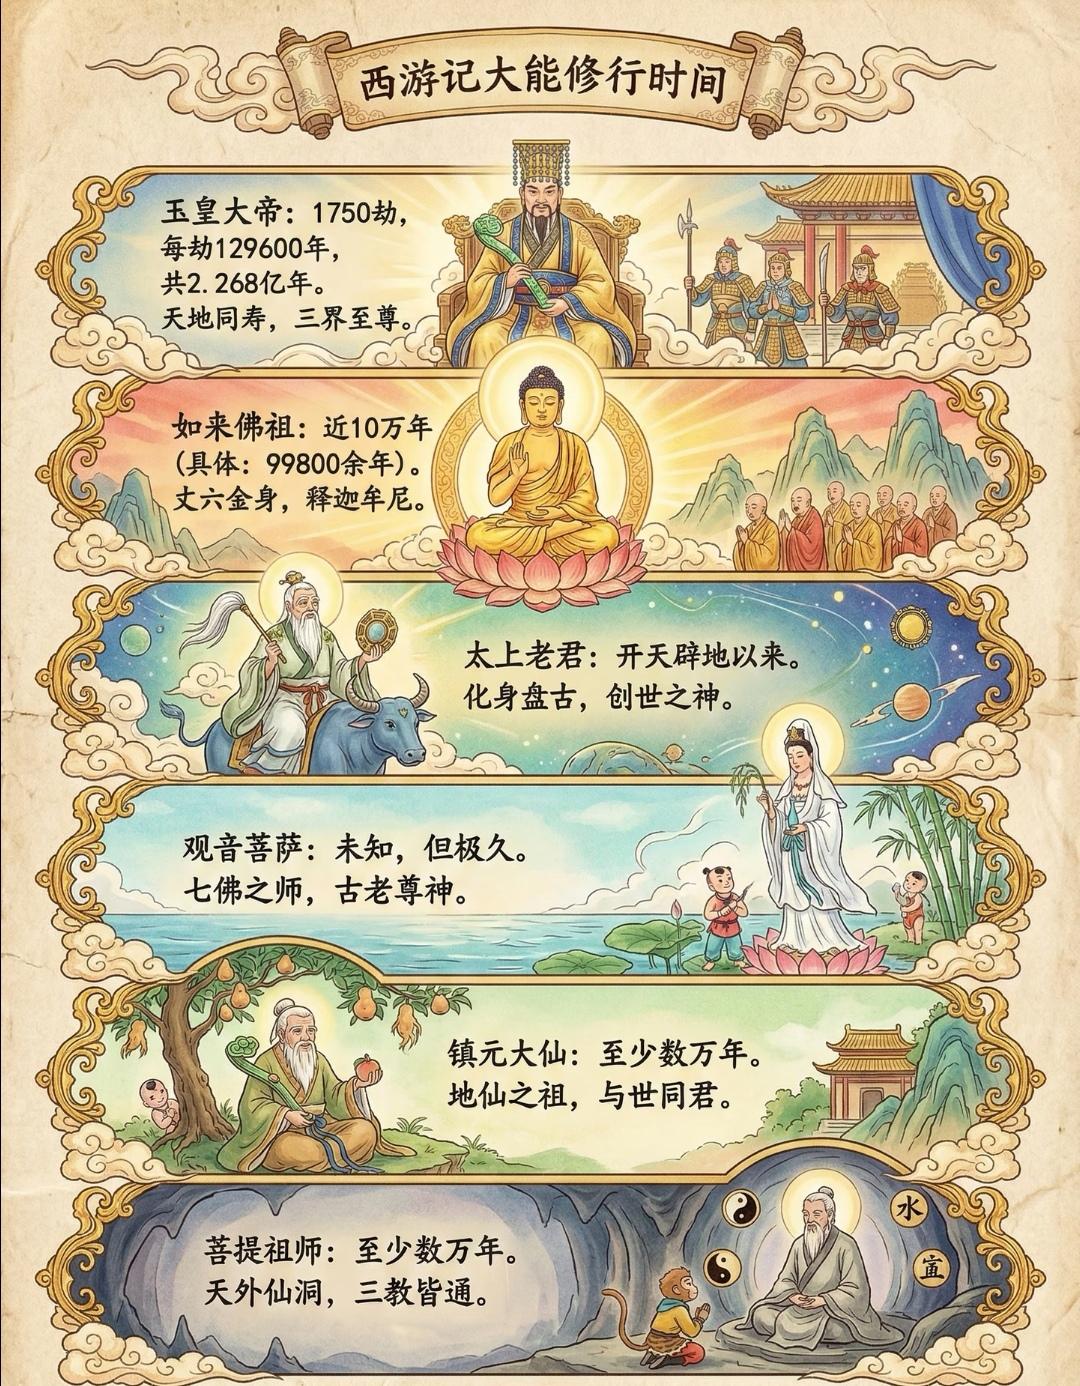 西游记大能修行时间
玉皇大帝：1750劫，
每劫129600年，
共2.268亿年。
天地同寿，三界至尊。
如来佛祖：近10万年
(具体：99800余年)。
丈六金身，释迦牟尼。
太上老君：开天辟地以来。
化身盘古，创世之神。
观音菩萨：未知，但极久。
七佛之师，古老尊神。
镇元大仙：至少数万年。
地仙之祖，与世同君。
菩提祖师：至少数万年。
天外仙洞，三教皆通。
水